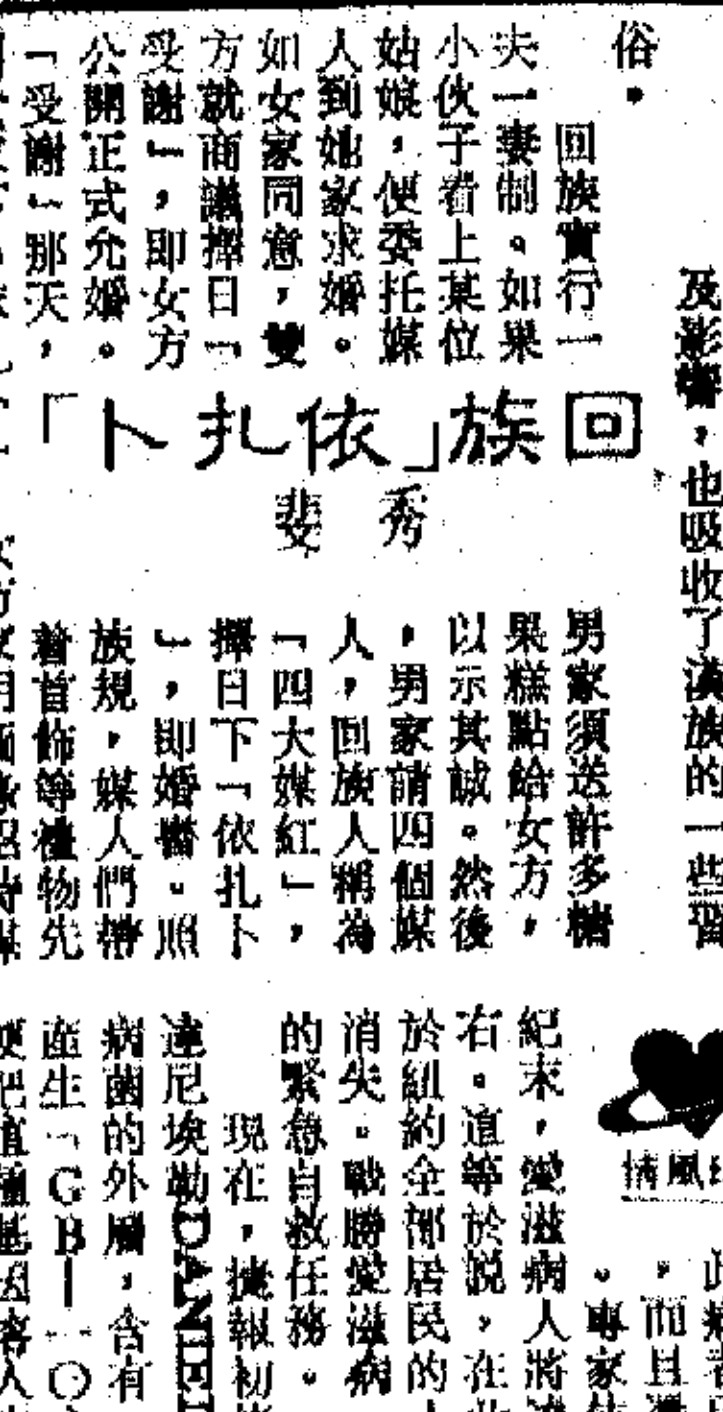 及影響，也吸收了漢族的一些習
俗。
回族「依扎卜」
秀斐
回族實行一
夫一妻制。如果
小伙子看上某位
姑娘，便委托媒
人到她家求婚。
如女家同意，雙
方就商議擇日「
受謝」，即女方
公開正式允婚。
「受謝」那天，
男家須送許多糖
果糕點給女方，
以示其誠。然後
，男家請四個媒
人，回族人稱為
「四大媒紅」，
擇日下「依扎卜
」，即婚書。照
族規，媒人們帶
着首飾等禮物先
情風
，而且
。專家
紀末，愛滋病人將
右。這等於說，在
於紐約全部居民的
消失。戰勝愛滋病
的緊急自救任務。
現在，捷報初
達尼埃勒DANIE
病菌的外層，含有
産生「GB一一〇